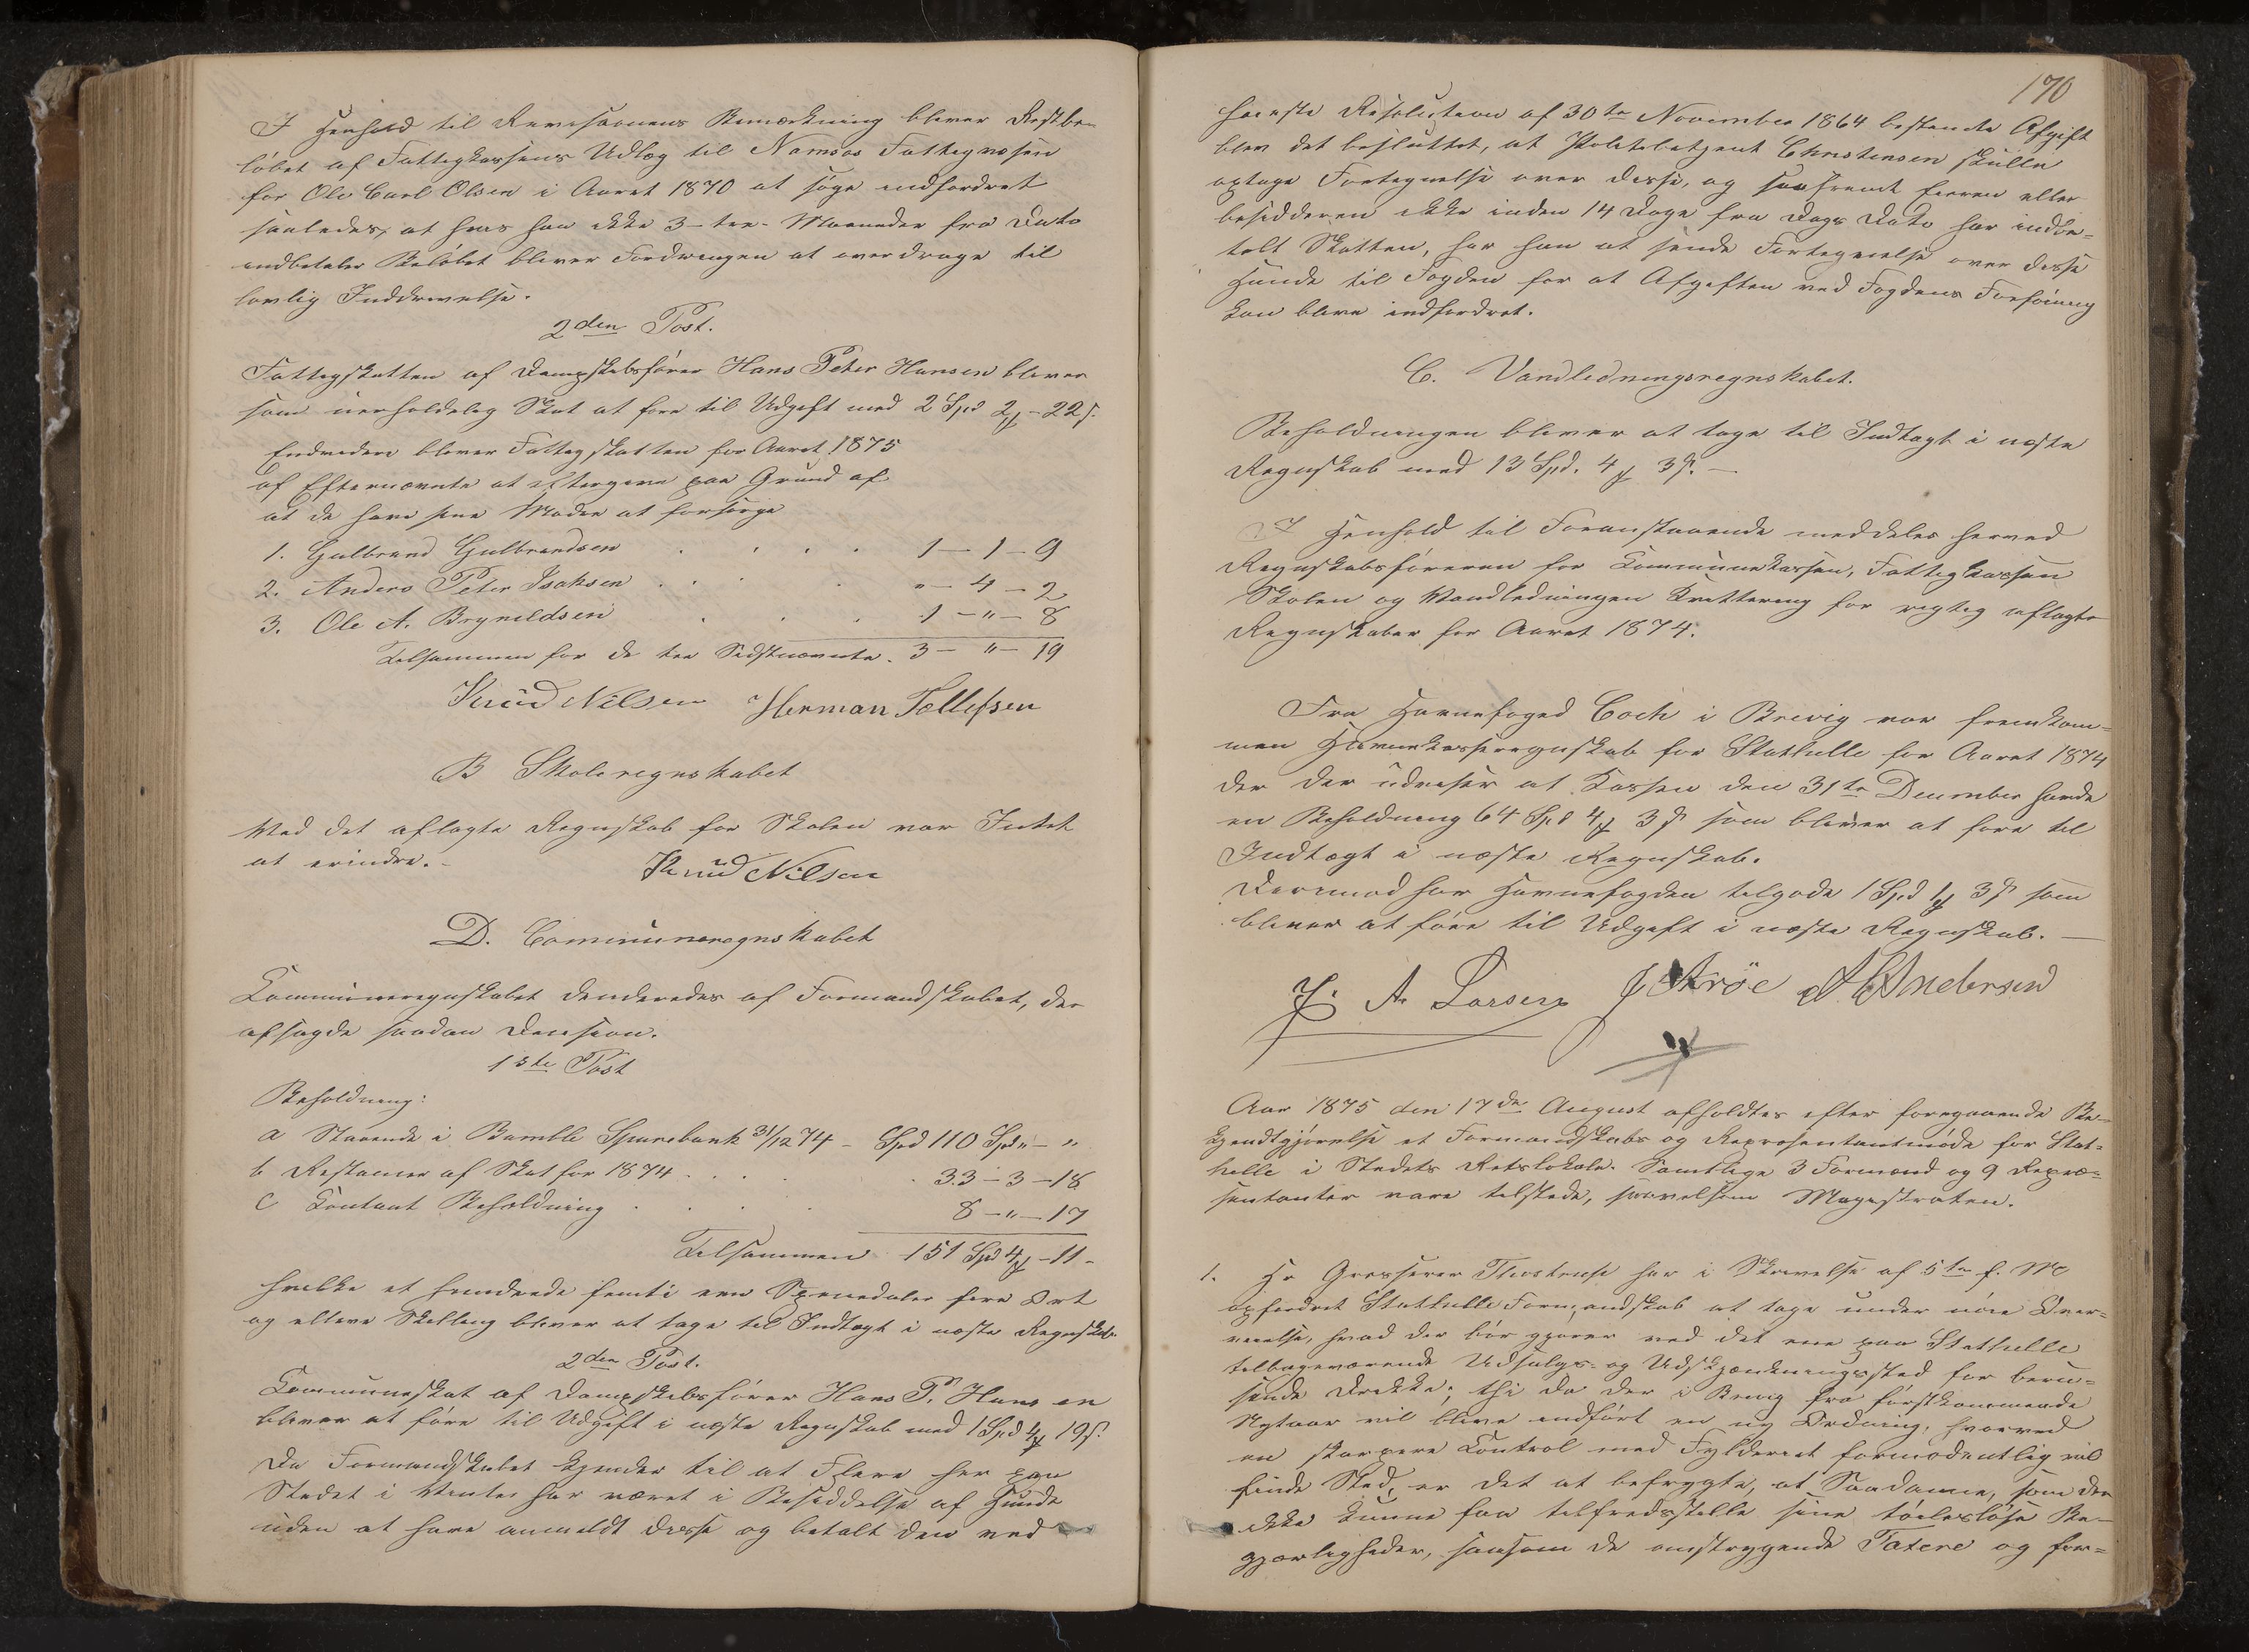 I Henhold til Revisionens Bemærkning bliver Restbe-
løbet af Fattigkassens Udlæg til Namsos Fattigvæsen
for Ole Carl Olsen i Aaret 1870 at søge indfordret
saaledes, at hvis han ikke 3-tre- Maaneder fra Dato
indbetaler Beløbet bliver Fordringen at overdrage til
lovlig Inddrivelse.
2den Post.
Fattigskatten af Dampskibsfører Hans Peter Hansen bliver
som uerholdelig Skat at føre til Udgift med 2 Spd 2 - 22 s.
Endvidere bliver Fattigskatten for Aaret 1875
af Efternævnte at eftergive paa Grund af
at de have sine Mødre at forsørge
1. Gulbrand Gulbrandsen . . . . 1 - 1 - 9
2. Anders Peter Isaksen . . . " - 4 - 2
3. Ole A. Bryneldsen . . . 1 - " - 8
Tilsammen for de tre Sidstnævnte. 3 - " - 19
Knud Nilsen Herman Tollefsen
B Skoleregnskabet
Ved det aflagte Regnskab for Skolen var Intet
at erindre.-
Knud Nilsen
D. Communeregnskabet
Communeregnskabet decideredes af Formandskabet, der
afsagde saadan Decision.
1ste Post
Beholdning:
a Staaende i Bamble Sparebank 31/12 74 - Spd 110 Spd " - "
b Restancer af Skat for 1874 . . . . 33 - 3 - 18
c Contant Beholdning . . . . 8 - " - 17
Tilsammen 151 Spd 4 - 11 -
hvilke et hundrede femti een Speciedaler fire Ort
og elleve Skilling bliver at tage til Indtægt i næste Regnskab
2den Post.
Communeskat af Dampskibsfører Hans P. Hansen
bliver at føre til Udgift i næste Regnskab med 1 Spd 4 19 s.
Da Formandskabet kjender til at Flere her paa
Stedet i Vinter har været i Besiddelse af Hunde
uden at have anmeldt disse og betalt den ved
170
høieste Resolution af 30te November 1864 bestemte Afgift
blev det besluttet, at Politibetjent Christensen skulle
optage Fortegnelse over disse, og saafremt Eieren eller
besidderen ikke inden 14 Dage fra Dags Dato har indbe-
talt Skatten, har han at sende Fortegnelse over disse
Hunde til Fogden for at Afgiften ved Fogdens Forføining
kan blive indfordret.
C. Vandledningsregnskabet.
Beholdningen bliver at tage til Indtægt i næste
Regnskab med 13 Spd. 4 3 s. -
I Henhold til Foranstaaende meddeles herved
Regnskabsføreren for Communekassen, Fattigkassen
Skolen og Vandledningen Kvittering for rigtig aflagte
Regnskaber for Aaret 1874.
Fra Havnefoged Coch i Brevig var fremkom-
men Havnekasseregnskab for Stathelle for Aaret 1874
der der udviser at Kassen den 31te December havde
en Beholdning 64 Spd 4 3 s som bliver at føre til
Indtægt i næste Regnskab.
Derimod har Havnefogden tilgode 1 Spd 1 3 s som
bliver at føre til Udgift i næste Regnskab. -
J. A. Larsen J Strøe A Andersen
Aar 1875 den 17de August afholdtes efter foregaaende Be-
kjendtgjørelse et Formandskabs og Repræsentantmøde for Stat-
helle i Stedets Retslokale. Samtlige 3 Formænd og 9 Repræ-
sentanter vare tilstede, saavelsom Magistraten.
1. Hr Grosserer har i Skrivelse af 5te f. M
opfordret Stathelle Formandskab at tage under nøie Over-
veielse, hvad der bør gjøres ved det ene paa Stathelle
tilbageværende Udsalgs- og Udskjænkningssted for beru-
sende Drikke; thi da der i Brevig fra førstkommende
Nytaar vil blive indført en ny Ordning, hvorved
en skarpere Control med Fylderiet formodentlig vil
finde Sted, er det at befrygte, at Saadanne, som der
ikke kunne faa tilfredsstille sine tøilesløse Be-
gjærligheder, saasom de omstrygende Tatere og for-